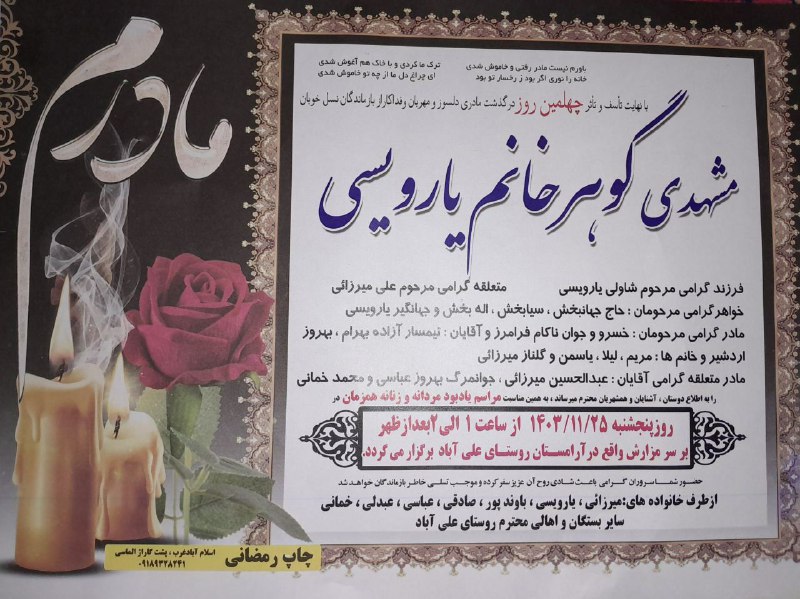 مادرم
باورم نیست مادر رفتی و خاموش شدی
ترک ما کردی و با خاک هم آغوش شدی
خانه را نوری اگر بود ز رخسار تو بود
ای چراغ دل ما از چه تو خاموش شدی
با نهایت تأسف و تأثر چهلمین روز درگذشت مادری دلسوز و مهربان و فداکار از بازماندگان نسل خوبان
مشهدی گوهر خانم یارویسی
فرزند گرامی مرحوم شاولی یارویسی
متعلقه گرامی مرحوم علی میرزائی
خواهر گرامی مرحومان : حاج جهانبخش ، سیابخش ، اله بخش و جهانگیر یارویسی
مادر گرامی مرحومان : خسرو و جوان ناکام فرامرز و آقایان : تیمسار آزاده بهرام ، بهروز
اردشیر و خانم ها : مریم ، لیلا ، یاسمن و گلناز میرزائی
مادر متعلقه گرامی آقایان : عبدالحسین میرزائی ، جوانمرگ بهروز عباسی و محمد خمانی
را به اطلاع دوستان ، آشنایان و همشهریان محترم میرساند ، به همین مناسبت مراسم یادبود مردانه و زنانه همزمان در
روز پنجشنبه ۱۴۰۳/۱۱/۲۵ از ساعت ۱ الی ۲ بعدازظهر
بر سر مزارش واقع در آرامستان روستای علی آباد برگزار می گردد.
حضور شما سروران گرامی باعث شادی روح آن عزیز سفر کرده و موجب تسلی خاطر بازماندگان خواهد شد
ازطرف خانواده های: میرزائی ، یارویسی ، باوند پور ، صادقی ، عباسی ، عبدلی ، خمانی
سایر بستگان و اهالی محترم روستای علی آباد
چاپ رمضانی
اسلام آبادغرب ، پشت گاراژ الماسی
۰۹۱۸۹۳۲۸۲۴۱